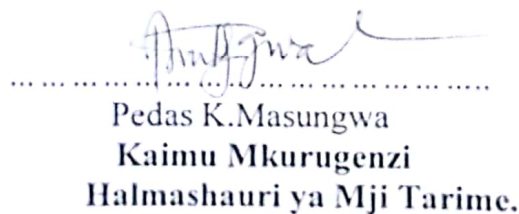 ................................................
Pedas K.Masungwa
Kaimu Mkurugenzi
Halmashauri ya Mji Tarime.